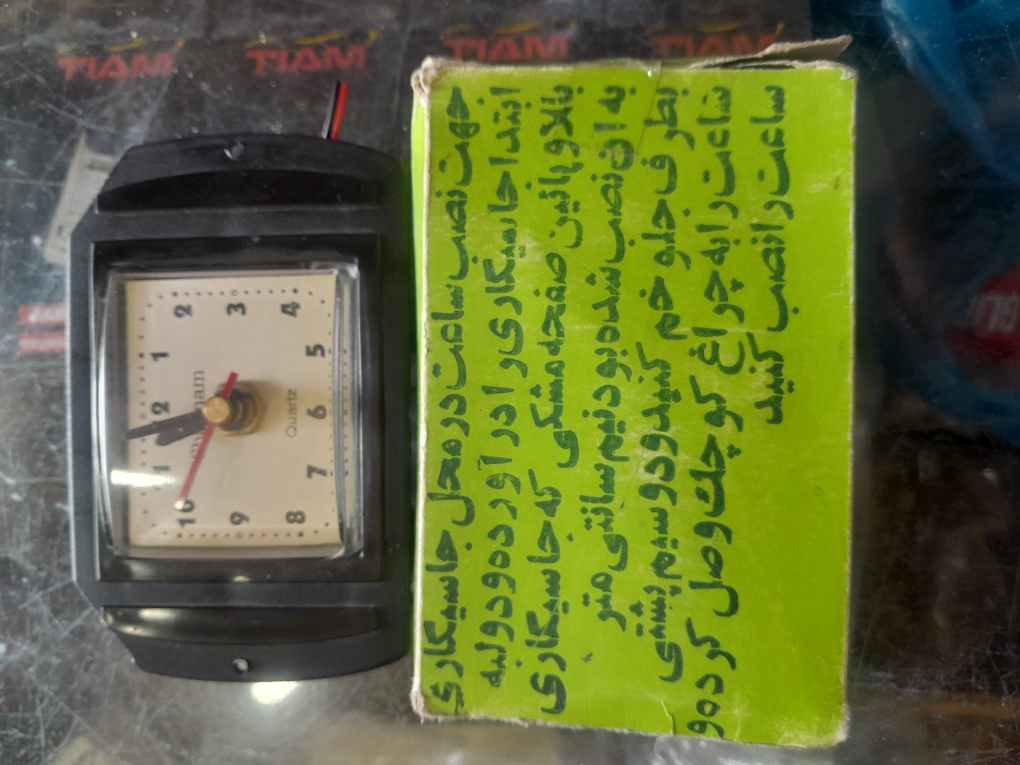 TIAM TIAM TIAM TIAM
جهت نصب ساعت در محل جاسیگاری
ابتدا جاسیگاری را در آورده و دو لبه
بالا و پائین صفحه مشکی که جاسیگاری
به ان نصب شده بود نیم سانتی متر
بطرف جلو خم کنید و دو سیم پشتی
ساعت را به چراغ کوچک وصل کرده و
ساعت را نصب کنید
1
2
3
4
5
6
7
8
9
10
Quartz